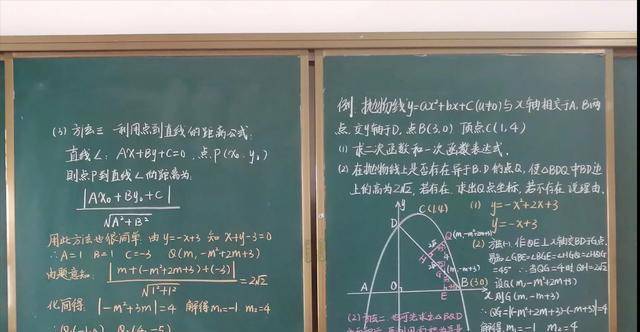 (3) 方法三 利用点到直线的距离公式.
直线L: AX+By+C=0, 点P(X₀, y₀)
则点P到直线L的距离为
|AX₀+By₀+C|
√A²+B²
用此方法也很简单 由 y=-x+3 知 x+y-3=0
∴A=1 B=1 C=-3 Q(m, -m²+2m+3)
由题意知: |m+(-m²+2m+3)+(-3)| =2√2
√1²+1²
化简得: |-m²+3m|=4 解得m₁=-1 m₂=4
例. 抛物线y=ax²+bx+C(a≠0)与X轴相交于A, B两
点. 交y轴于D, 点B(3,0) 顶点C(1,4)
(1) 求二次函数和一次函数表达式.
(2) 在抛物线上是否存在异于B.D的点Q, 使△BDQ中BD边
上的高为2√2, 若存在, 求出Q点坐标, 若不存在 说理由.
(1) y=-x²+2x+3
y=-x+3
y
C(1,4)
D
Q(m,-m²+2m+3)
H
G(m,-m+3)
A
O
E
B(3,0)
x
(2) 方法1. 作QE⊥X轴交BD于G点.
=45° ∴当QG=4时 QH=2√2
设Q(m, -m²+2m+3)
则G(m, -m+3)
∴QG=|(-m²+2m+3)-(-m+3)|=4
解得m₁=-1 m₂=4